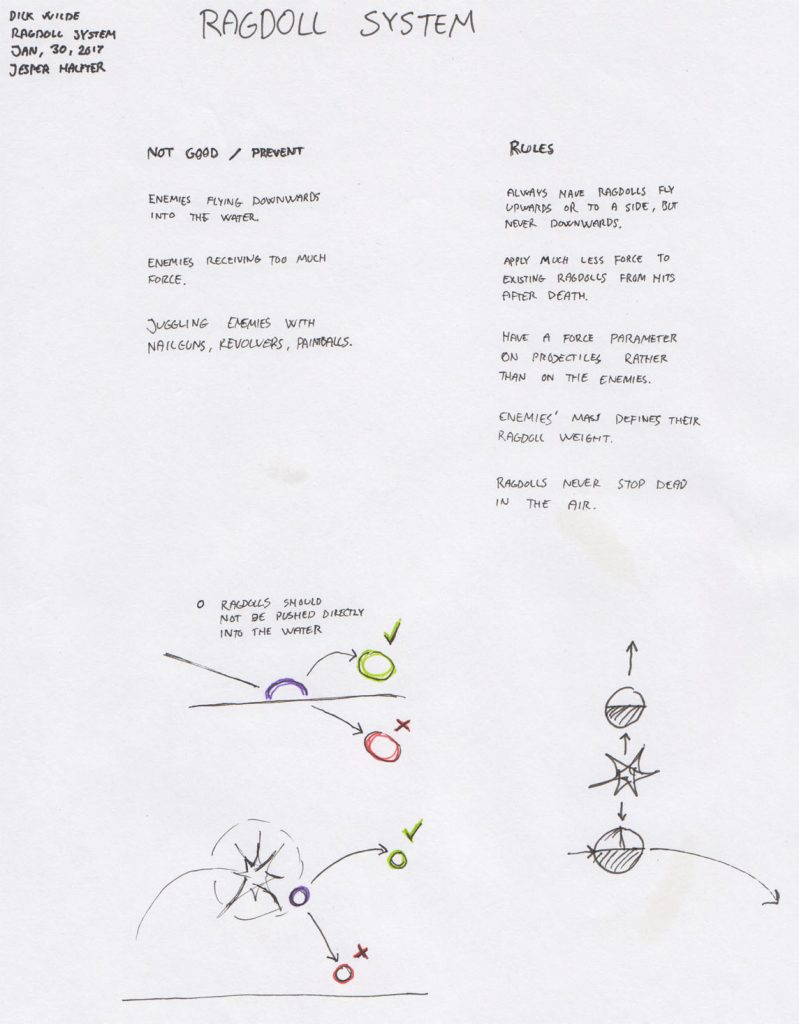 DICK WILDE
RAGDOLL SYSTEM
JAN, 30, 2017
JESPER HALFTER
RAGDOLL SYSTEM
NOT GOOD / PREVENT
ENEMIES FLYING DOWNWARDS
INTO THE WATER.
ENEMIES RECEIVING TOO MUCH
FORCE.
JUGGLING ENEMIES WITH
NAILGUNS, REVOLVERS, PAINTBALLS.
RULES
ALWAYS HAVE RAGDOLLS FLY
UPWARDS OR TO A SIDE, BUT
NEVER DOWNWARDS.
APPLY MUCH LESS FORCE TO
EXISTING RAGDOLLS FROM HITS
AFTER DEATH.
HAVE A FORCE PARAMETER
ON PROJECTILES RATHER
THAN ON THE ENEMIES.
ENEMIES' MASS DEFINES THEIR
RAGDOLL WEIGHT.
RAGDOLLS NEVER STOP DEAD
IN THE AIR.
RAGDOLLS SHOULD
NOT BE PUSHED DIRECTLY
INTO THE WATER